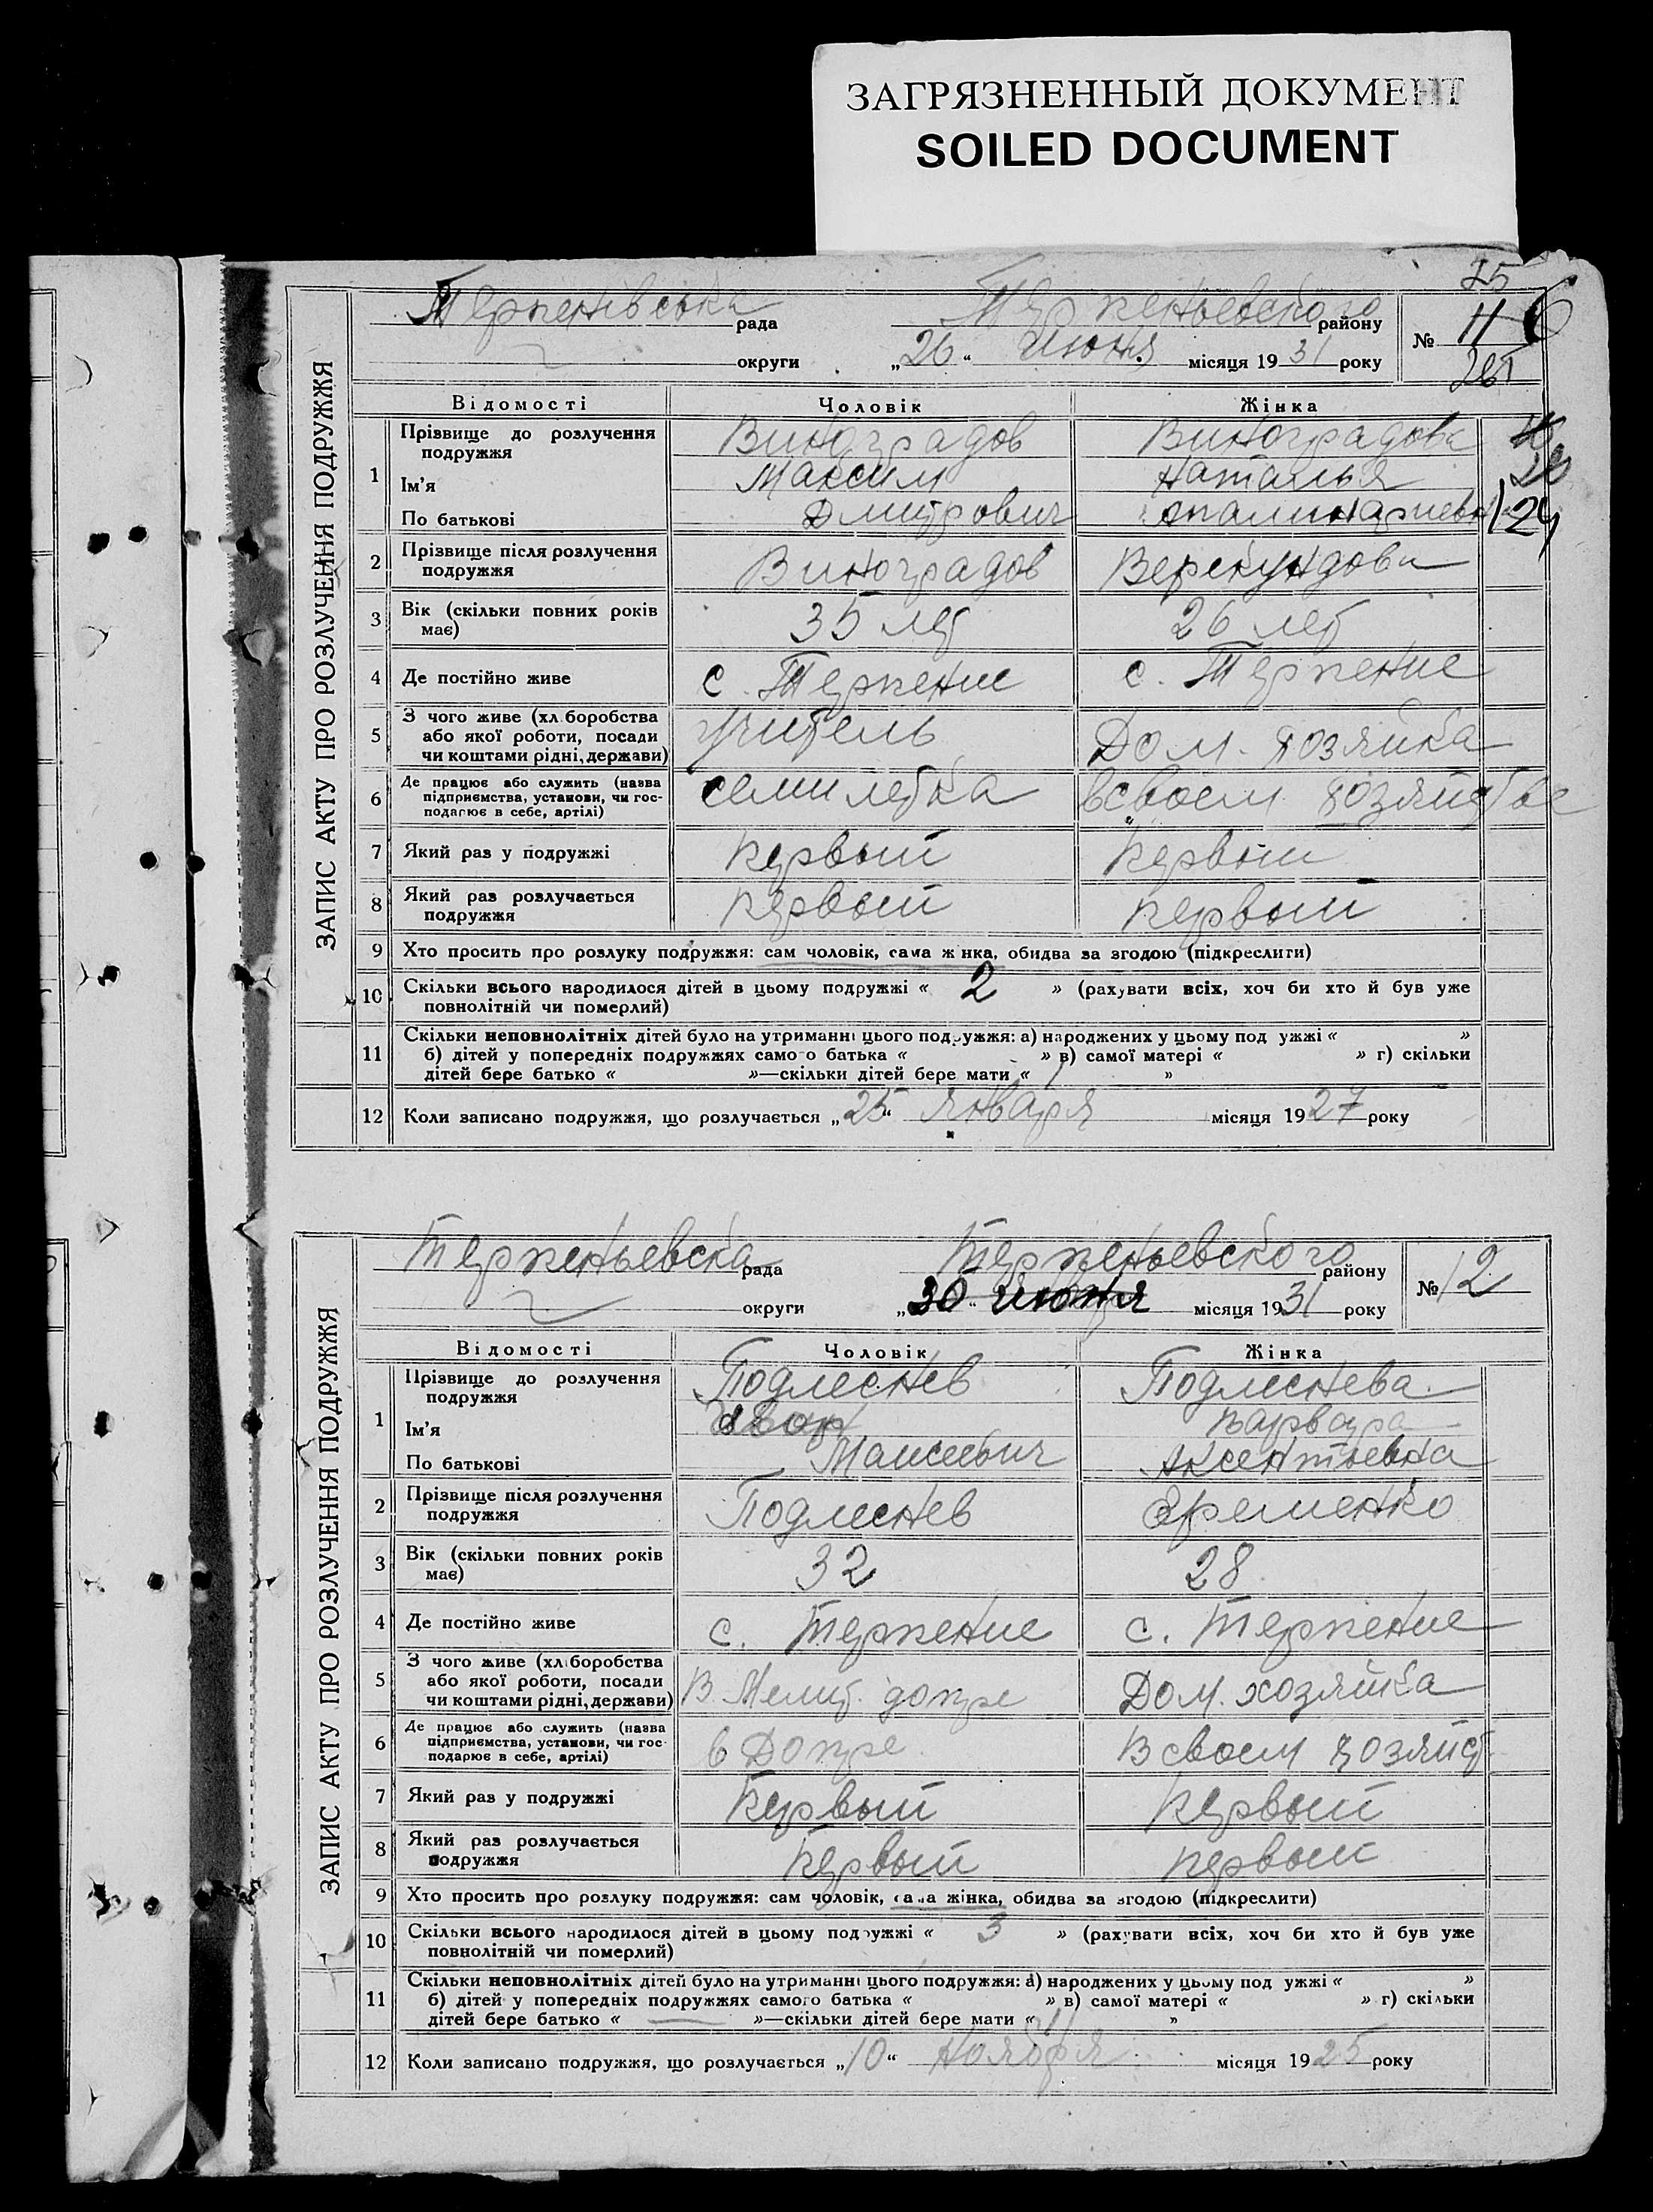 ЗАГРЯЗНЕННЫЙ ДОКУМЕНТ
SOILED DOCUMENT
ЗАПИС АКТУ ПРО РОЗЛУЧЕННЯ ПОДРУЖЖЯ
Терпенівська рада Терпеньевского району № 11
округи „26“ Июня місяця 1931 року
Відомості Чоловік Жінка
1 Прізвище до розлучення подружжя Виноградов Виноградова
Ім’я Максим Наталья
По батькові Дмитрович Апалинариевн 24
2 Прізвище після розлучення подружжя Виноградов Верекундова
3 Вік (скільки повних років має) 35 лет 26 лет
4 Де постійно живе с. Терпение с. Терпение
5 З чого живе (хліборобства або якої роботи, посади чи коштами рідні, держави) учитель Дом. хозяйка
6 Де працює або служить (назва підприємства, установи, чи господарює в себе, артілі) семилетка в своем хозяйстве
7 Який раз у подружжі Первый Первый
8 Який раз розлучається подружжя Первый Первый
9 Хто просить про розлуку подружжя: сам чоловік, сама жінка, обидва за згодою (підкреслити)
10 Скільки всього народилося дітей в цьому подружжі « 2 » (рахувати всіх, хоч би хто й був уже
повнолітній чи померлий)
11 Скільки неповнолітніх дітей було на утриманні цього подружжя: а) народжених у цьому подружжі « »
б) дітей у попередніх подружжях самого батька « » в) самої матері « » г) скільки
дітей бере батько « »—скільки дітей бере мати « »
12 Коли записано подружжя, що розлучається „25“ января місяця 1927 року
ЗАПИС АКТУ ПРО РОЗЛУЧЕННЯ ПОДРУЖЖЯ
Терпеньевска рада Терпеньевского району № 12
округи „30“ Июня місяця 1931 року
Відомості Чоловік Жінка
1 Прізвище до розлучення подружжя Подмеснев Подмеснева
Ім’я Варвара
По батькові Моисеевич Аксентьевна
2 Прізвище після розлучення подружжя Подмеснев Еременко
3 Вік (скільки повних років має) 32 28
4 Де постійно живе с. Терпение с. Терпение
5 З чого живе (хліборобства або якої роботи, посади чи коштами рідні, держави) В Мелит. допре Дом. хозяйка
6 Де працює або служить (назва підприємства, установи, чи господарює в себе, артілі) в Допре В своем хозяйст
7 Який раз у подружжі Первый Первый
8 Який раз розлучається подружжя Первый Первый
9 Хто просить про розлуку подружжя: сам чоловік, сама жінка, обидва за згодою (підкреслити)
10 Скільки всього народилося дітей в цьому подружжі « 3 » (рахувати всіх, хоч би хто й був уже
повнолітній чи померлий)
11 Скільки неповнолітніх дітей було на утриманні цього подружжя: а) народжених у цьому подружжі « »
б) дітей у попередніх подружжях самого батька « » в) самої матері « » г) скільки
дітей бере батько « — »—скільки дітей бере мати « »
12 Коли записано подружжя, що розлучається „10“ Ноября місяця 1925 року